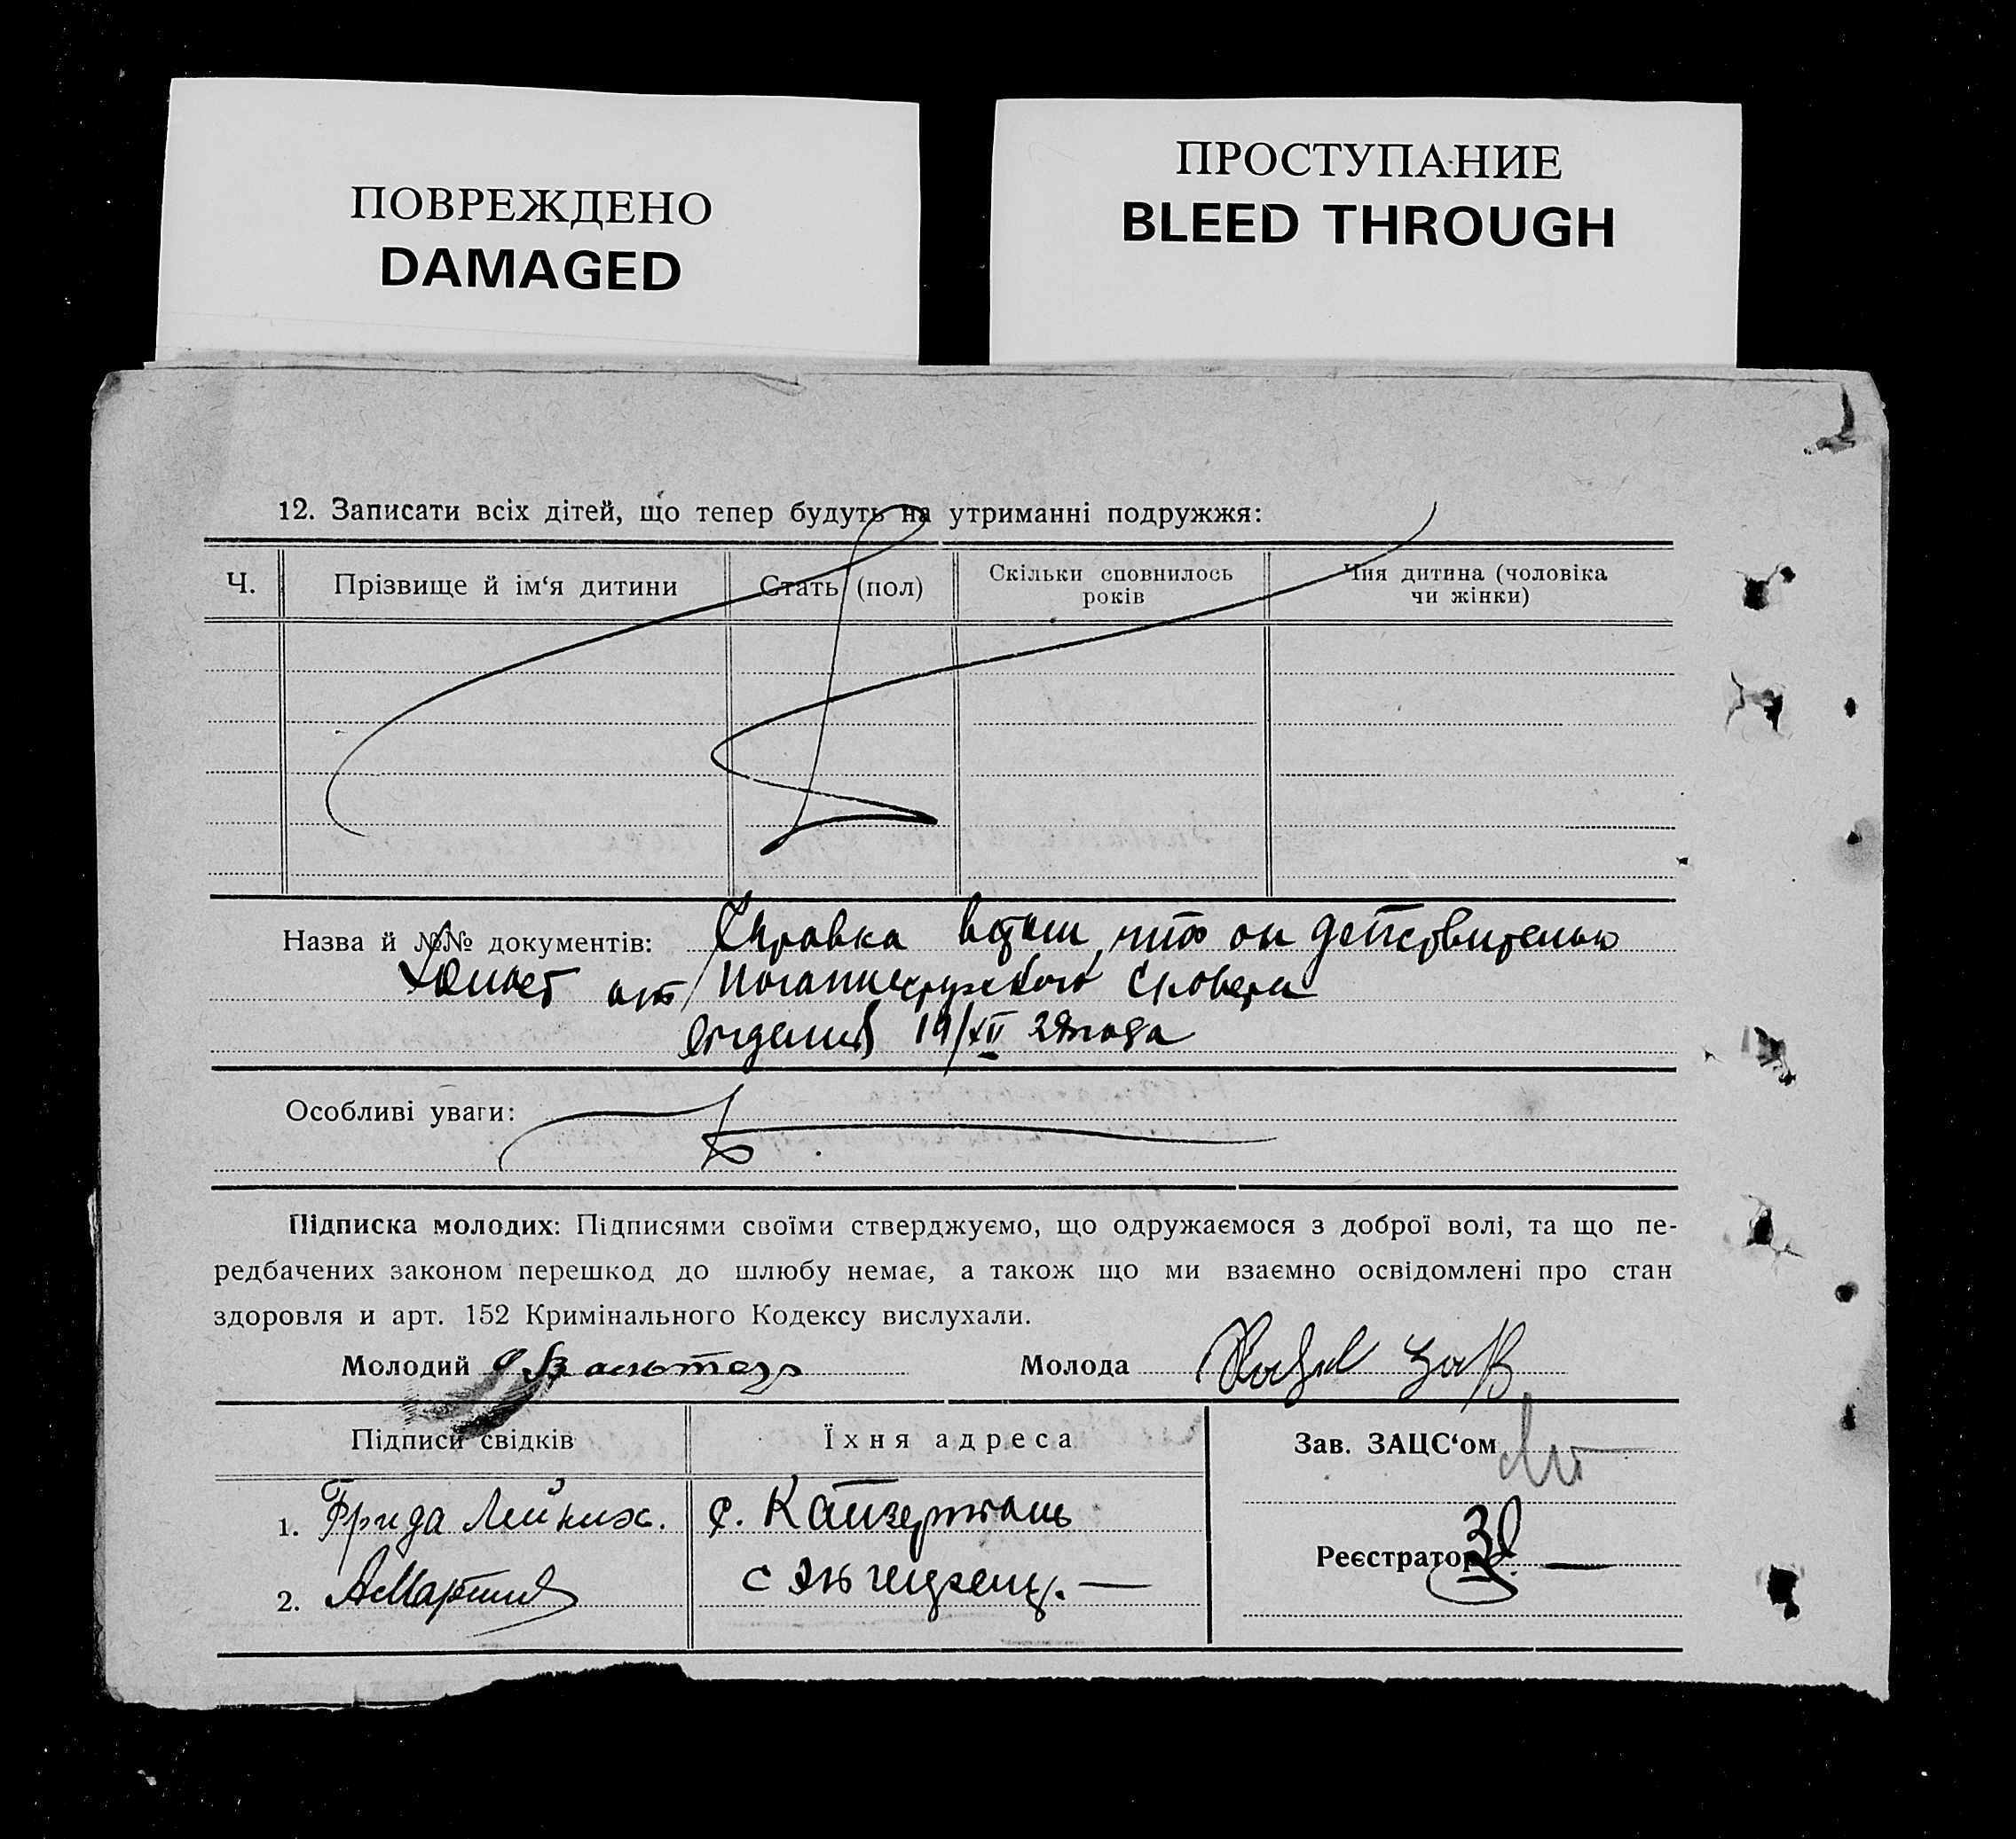 ПОВРЕЖДЕНО
DAMAGED
ПРОСТУПАНИЕ
BLEED THROUGH
12. Записати всіх дітей, що тепер будуть на утриманні подружжя:
Ч.
Прізвище й ім‘я дитини
Стать (пол)
Скільки сповнилось
років
Чия дитина (чоловіка
чи жінки)
Назва й №№ документів: Справка что он действительно
холост от
19/XII 29 года
Особливі уваги:
Підписка молодих: Підписями своїми стверджуємо, що одружаємося з доброї волі, та що пе-
редбачених законом перешкод до шлюбу немає, а також що ми взаємно освідомлені про стан
здоровля и арт. 152 Кримінального Кодексу вислухали.
Молодий
Молода
Підписи свідків
Їхня адреса
Зав. ЗАЦС‘ом
1. Фрида с. Кайзерталь
2. АМартин с
Реєстратор